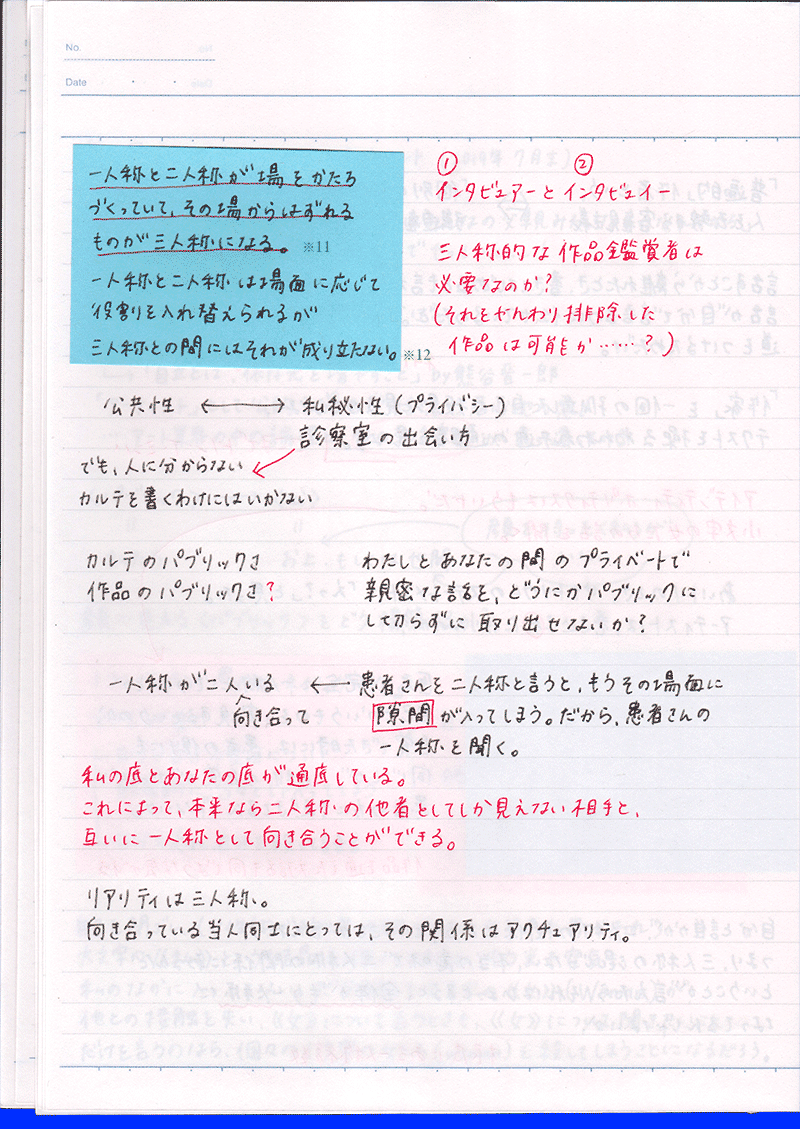 No.
Date
一人称と二人称が場をかたち
づくっていて、その場からはずれる
ものが三人称になる。※11
一人称と二人称は場面に応じて
役割を入れ替えられるが
三人称との間にはそれが成り立たない。※12
① ②
インタビュアーとインタビュイー
三人称的な作品鑑賞者は
必要なのか?
(それをやんわり排除した
作品は可能か……?)
公共性 ←→ 私秘性(プライバシー)
診察室の出会い方
でも、人に分からない
カルテを書くわけにはいかない
カルテのパブリックさ
作品のパブリックさ?
わたしとあなたの間のプライベートで
親密な話を、どうにかパブリックに
し切らずに取り出せないか?
一人称が二人いる
向き合って
← 患者さんを二人称と言うと、もうその場面に
隙間が入ってしまう。だから、患者さんの
一人称を聞く。
私の底とあなたの底が通底している。
これによって、本来なら二人称の他者としてしか見えない相手と、
互いに一人称として向き合うことができる。
リアリティは三人称。
向き合っている当人同士にとっては、その関係はアクチュアリティ。